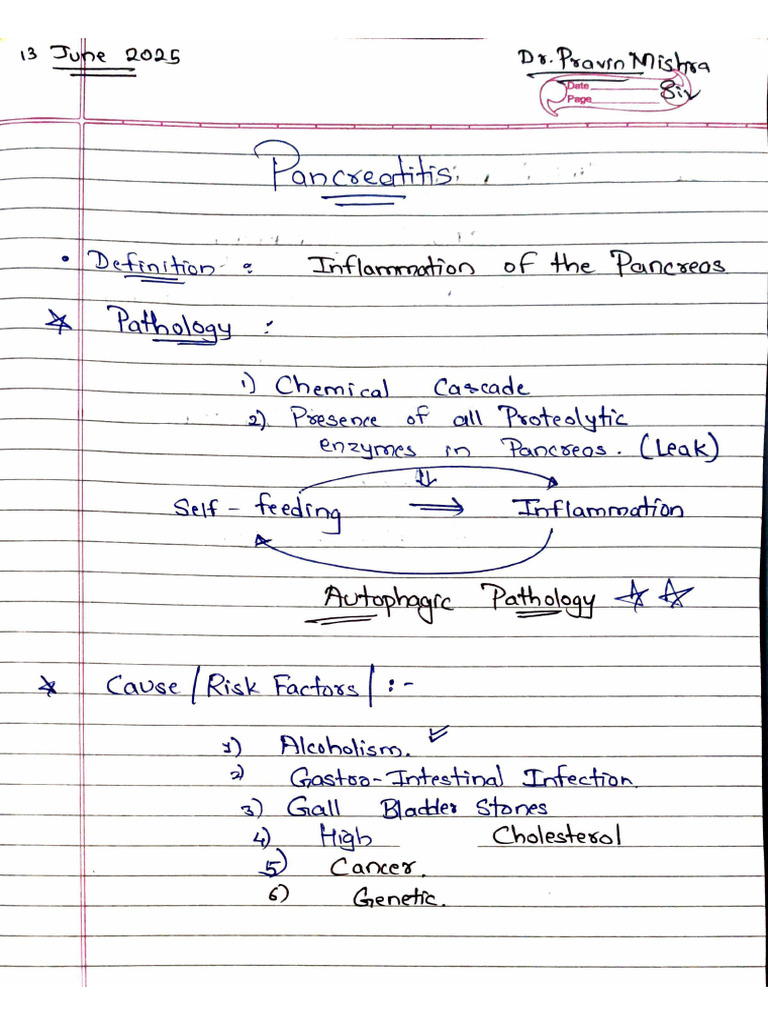 13 June 2025
Dr. Pravin Mishra
Sir
Date
Page
Pancreatitis
• Definition : Inflammation of the Pancreas
☆ Pathology :
1) Chemical Cascade
2) Presence of all Proteolytic
enzymes in Pancreas. (Leak)
Self - feeding ⇒ Inflammation
Autophagic Pathology ☆ ☆
☆ Cause / Risk Factors / :-
1) Alcoholism. ✓
2) Gastro-Intestinal Infection
3) Gall Bladder Stones
4) High Cholesterol
5) Cancer.
6) Genetic.